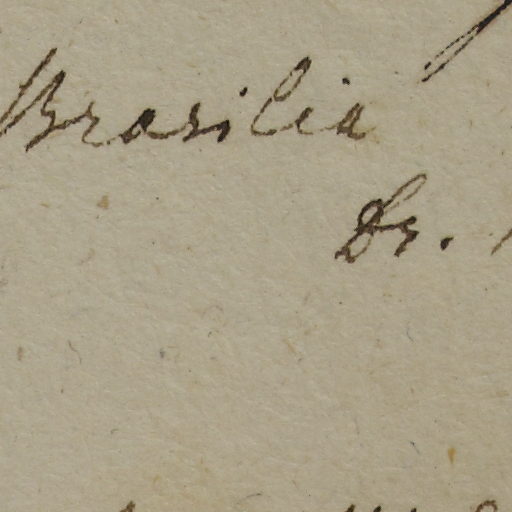 Brasilia
Dr.